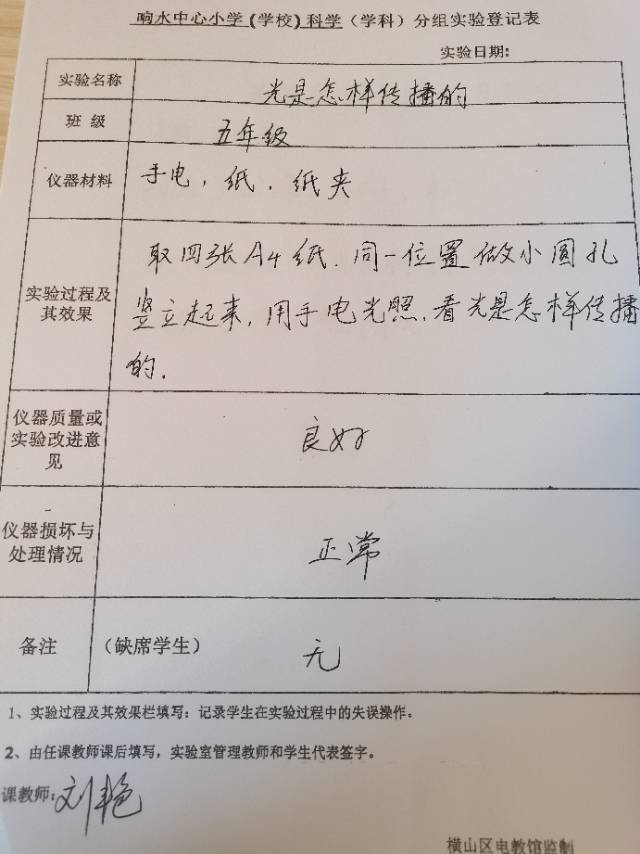 响水中心小学(学校)科学(学科)分组实验登记表
实验日期:
实验名称 光是怎样传播的
班 级 五年级
仪器材料 手电，纸，纸夹
实验过程及其效果
取四张A4纸.同一位置做小圆孔
竖立起来,用手电光照,看光是怎样传播
的.
仪器质量或
实验改进意
见
良好
仪器损坏与
处理情况
正常
备注 (缺席学生) 无
1、实验过程及其效果栏填写：记录学生在实验过程中的失误操作。
2、由任课教师课后填写，实验室管理教师和学生代表签字。
课教师:刘艳
横山区电教馆监制